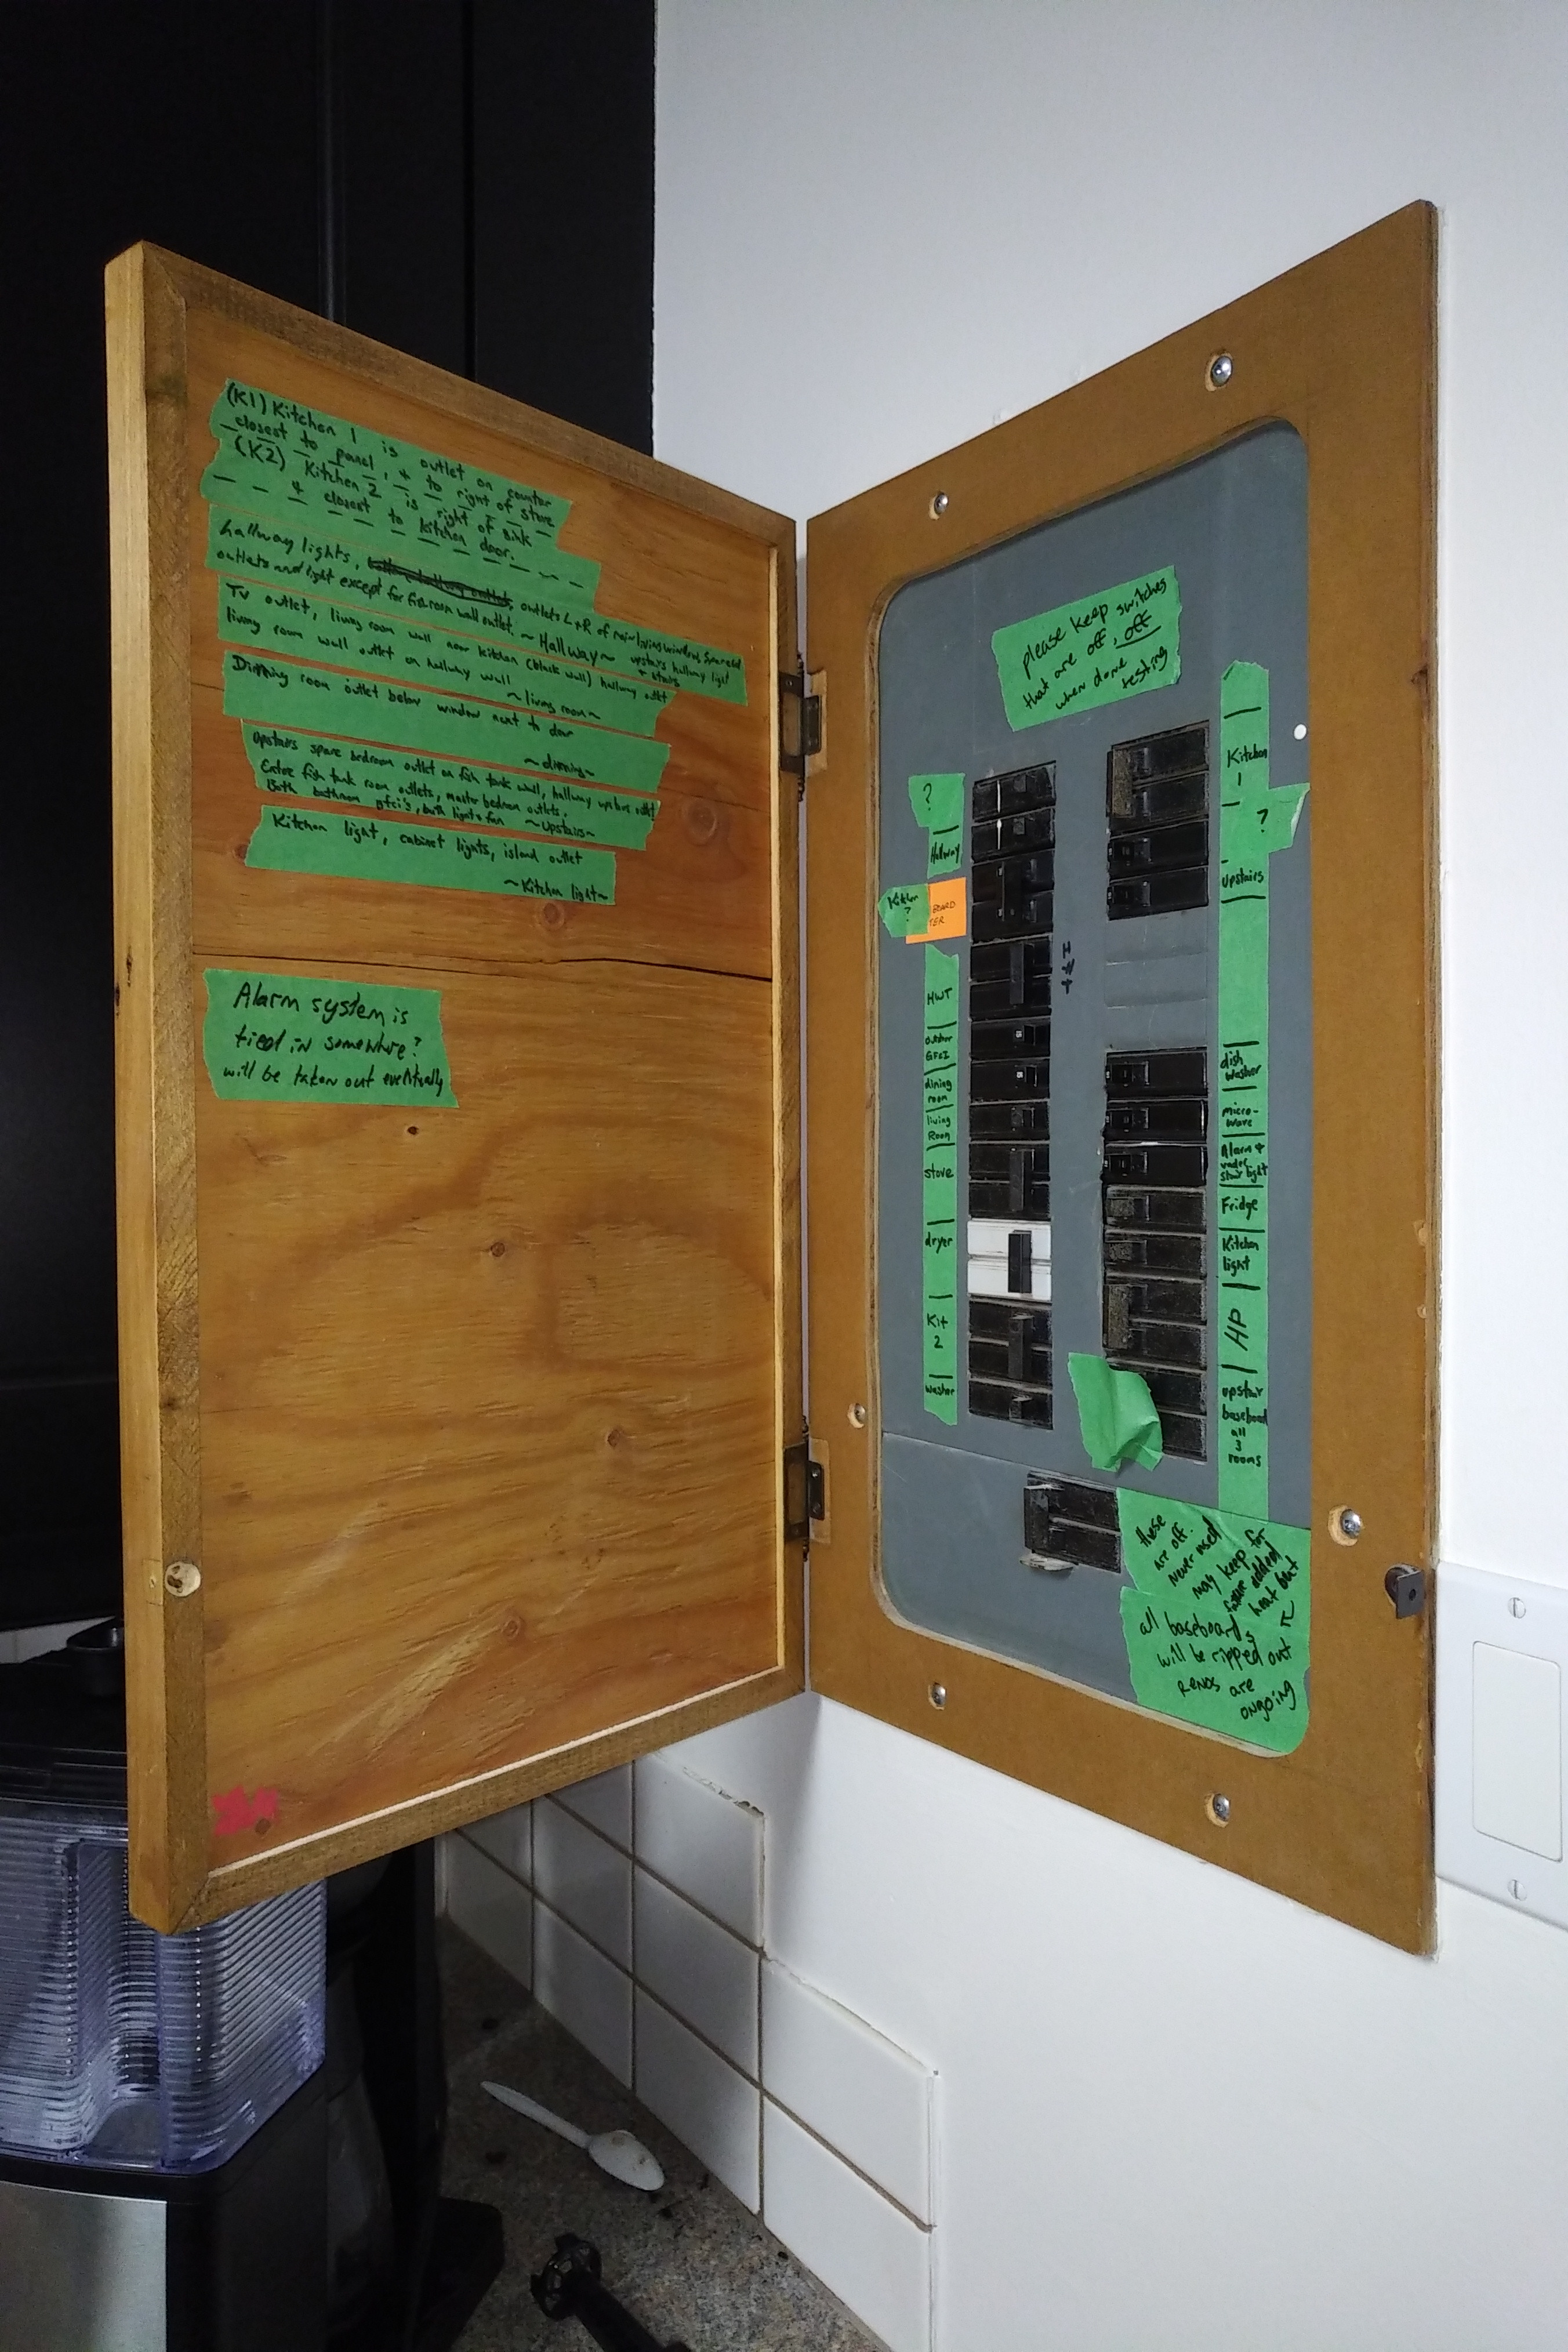 (K1) Kitchen 1 is outlet on counter
closest to panel, + to right of stove
(K2) Kitchen 2 is right of sink
+ closest to kitchen door.
hallway lights, outlets L+R of main living window, spare bed
outlets and light except for fishroom wall outlet. ~Hallway~ upstairs hallway light
+ stairs
TV outlet, living room wall near kitchen (black wall) hallway outlet
living room wall outlet on hallway wall ~living room~
Dinning room outlet below window next to door
~dinning~
Upstairs spare bedroom outlet on fish tank wall, hallway upstairs outlet
Entire fish tank room outlets, master bedroom outlets.
Both bathroom gfci's, bath light + fan ~Upstairs~
Kitchen light, cabinet lights, island outlet
~Kitchen light~
Alarm system is
tied in somewhere?
will be taken out eventually
please keep switches
that are off, off
when done testing
?
Hallway
Kitchen
?
BOARD
TER
HWT
outdoor
GFCI
dining
room
living
Room
stove
dryer
Kit
2
washer
HWT
Kitchen
1
?
Upstairs
dish
washer
micro-
wave
Alarm +
under
stair light
Fridge
Kitchen
light
HP
upstair
baseboard
all
3
rooms
these
are off.
never used
may keep for
future added
heat but
all baseboards
will be ripped out
Renos are
ongoing